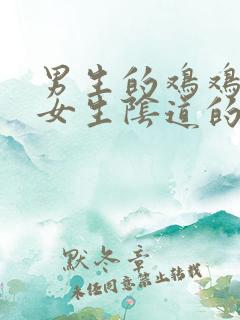 男生的鸡鸡
女生阴道的
默冬章
未经同意禁止转载